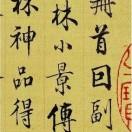 冊首回副
林小景傳
林神品得